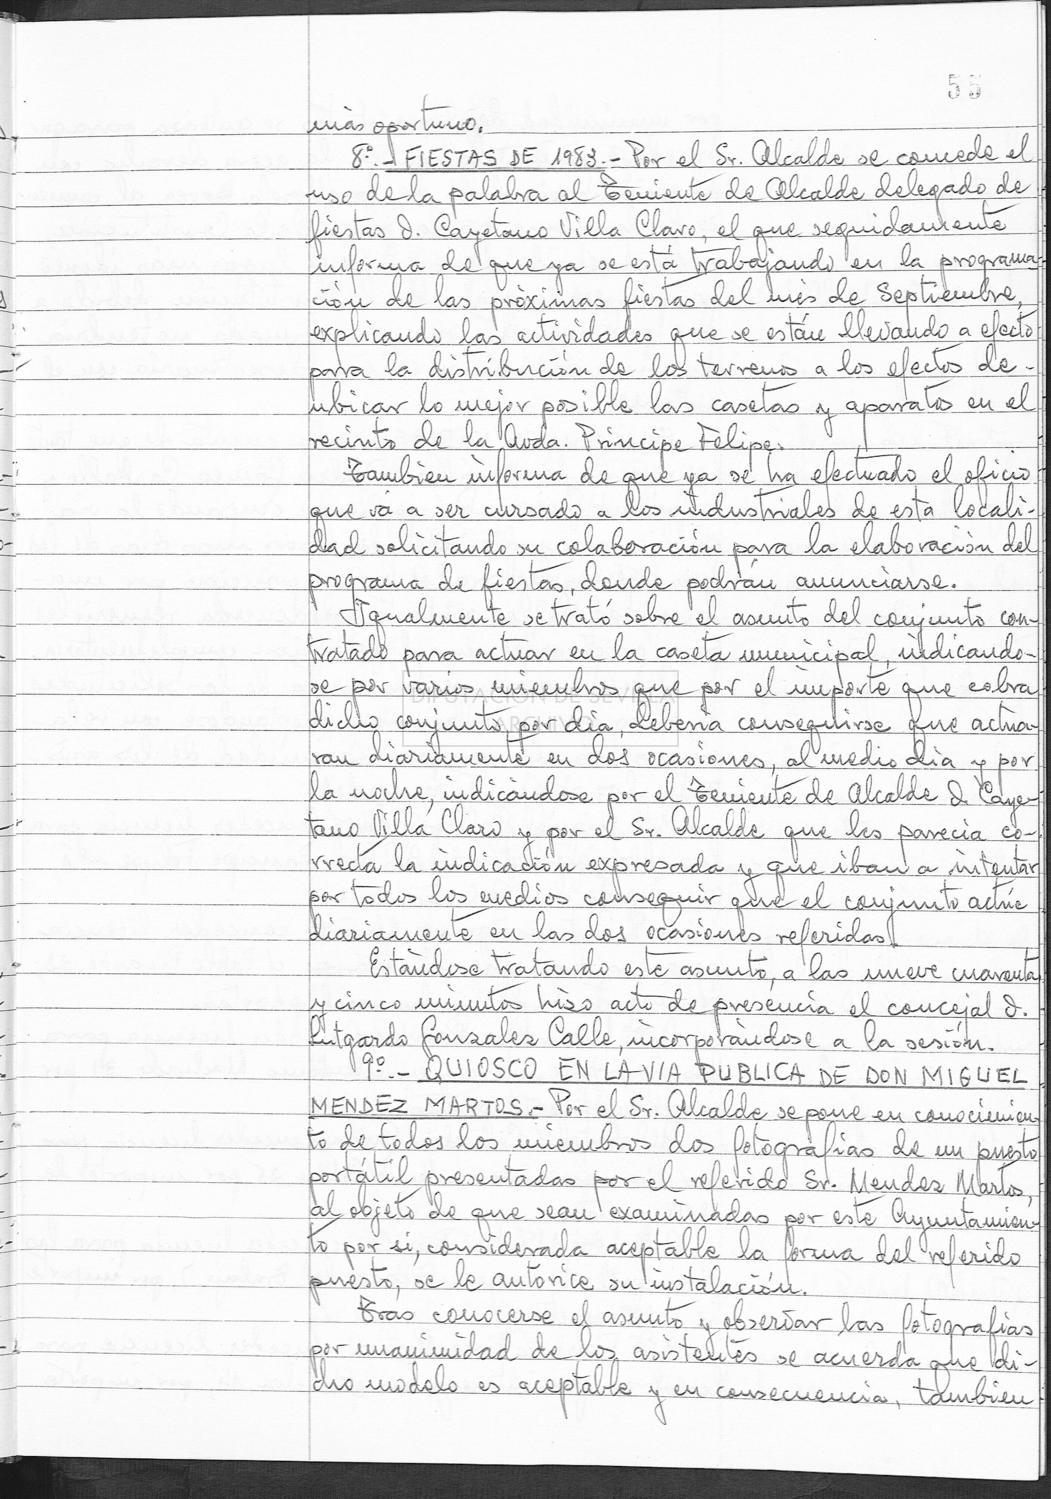 55
más oportuno.
8º.- FIESTAS DE 1983.- Por el Sr. Alcalde se concede el
uso de la palabra al Teniente de Alcalde delegado de
fiestas D. Cayetano Villa Claro, el que seguidamente
informa de que ya se está trabajando en la programa-
ción de las próximas fiestas del mes de Septiembre,
explicando las actividades que se están llevando a efecto
para la distribución de los terrenos a los efectos de-
ubicar lo mejor posible las casetas y aparatos en el
recinto de la Avda. Principe Felipe.
Tambien informa de que ya se ha efectuado el oficio
que vá a ser cursado a los industriales de esta locali-
dad solicitando su colaboración para la elaboración del
programa de fiestas, donde podrán anunciarse.
Igualmente se trató sobre el asunto del conjunto con-
tratado para actuar en la caseta municipal, indicando-
se por varios miembros que por el importe que cobra
DIPUTACIÓN DE SEVILLA
dicho conjunto, por dia, deberia conseguirse que actua-
ARCHIVO
ran diariamente en dos ocasiones, al medio dia y por
la noche, indicándose por el Teniente de Alcalde D. Caye-
tano Villa Claro y por el Sr. Alcalde que les parecia co-
rrecta la indicación expresada y que iban a intentar
por todos los medios conseguir que el conjunto actúe
diariamente en las dos ocasiones referidas.
Estándose tratando este asunto, a las nueve cuarenta
y cinco minutos hizo acto de presencia el concejal D.
Lutgardo Gonzalez Calle, incorporándose a la sesión.
9º.- QUIOSCO EN LA VIA PUBLICA DE DON MIGUEL
MENDEZ MARTOS.- Por el Sr. Alcalde se pone en conocimien-
to de todos los miembros dos fotografias de un puesto
portátil presentadas por el referido Sr. Mendez Martos,
al objeto de que sean examinadas por este Ayuntamien-
to por si, considerada aceptable la forma del referido
puesto, se le autorice su instalación.
Tras conocerse el asunto y observar las fotografias
por unanimidad de los asistentes se acuerda que di-
cho modelo es aceptable y en consecuencia, tambien